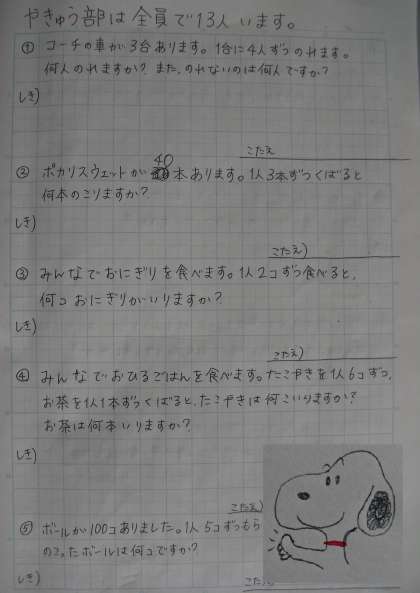 やきゅう部は全員で13人います。
① コーチの車が3台あります。1台に4人ずつのれます。
何人のれますか？また、のれないのは何人ですか？
しき）
こたえ
② ポカリスウェットが40本あります。1人3本ずつくばると
何本のこりますか？
しき）
こたえ）
③ みんなでおにぎりを食べます。1人2コずつ食べると、
何コおにぎりがいりますか？
しき）
こたえ）
④ みんなでおひるごはんを食べます。たこやきを1人6コずつ、
お茶を1人1本ずつくばると、たこやきは何こいりますか？
お茶は何本いりますか？
しき）
こたえ）
⑤ ボールが100コありました。1人5コずつもら
のこったボールは何コですか？
しき）
こたえ